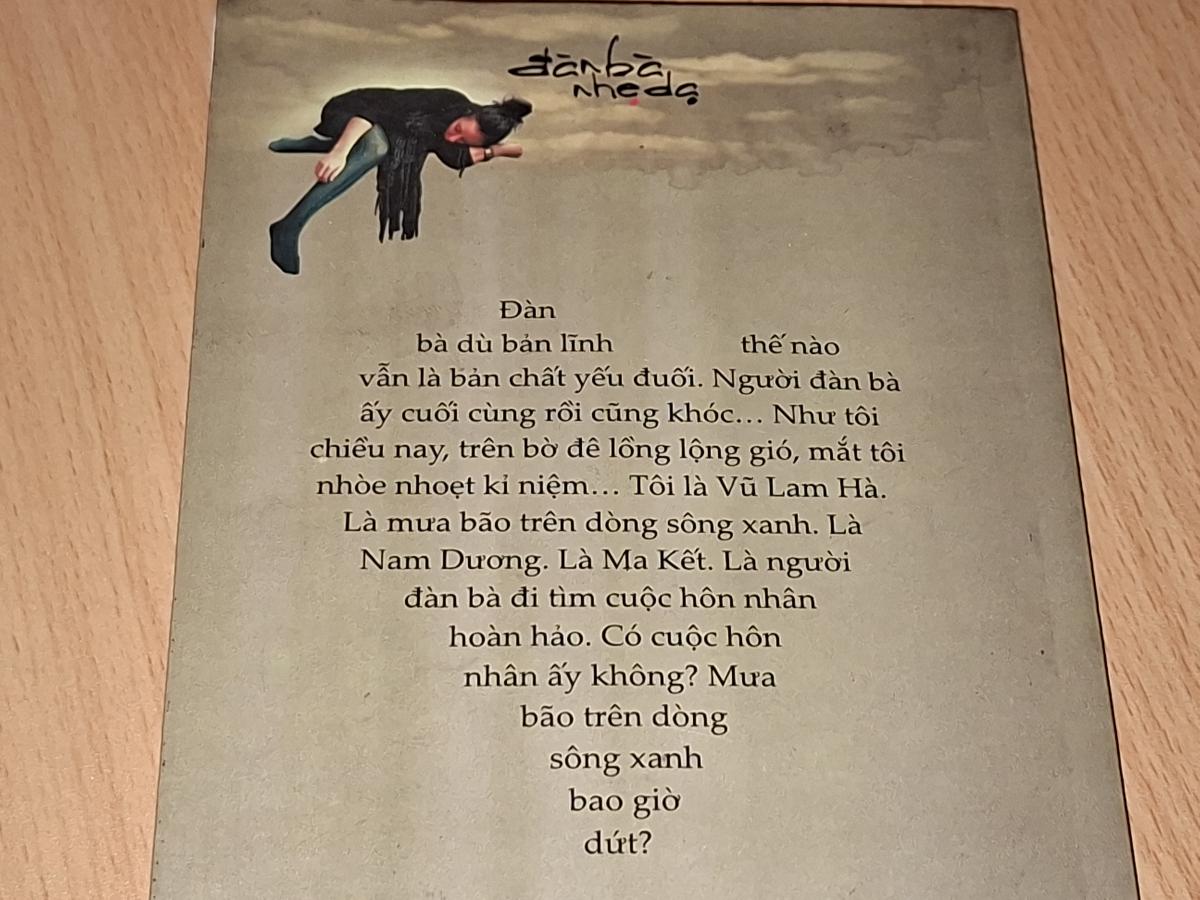 đàn bà
nhẹ dạ
Đàn
bà dù bản lĩnh thế nào
vẫn là bản chất yếu đuối. Người đàn bà
ấy cuối cùng rồi cũng khóc... Như tôi
chiều nay, trên bờ đê lồng lộng gió, mắt tôi
nhòe nhoẹt kỉ niệm... Tôi là Vũ Lam Hà.
Là mưa bão trên dòng sông xanh. Là
Nam Dương. Là Ma Kết. Là người
đàn bà đi tìm cuộc hôn nhân
hoàn hảo. Có cuộc hôn
nhân ấy không? Mưa
bão trên dòng
sông xanh
bao giờ
dứt?